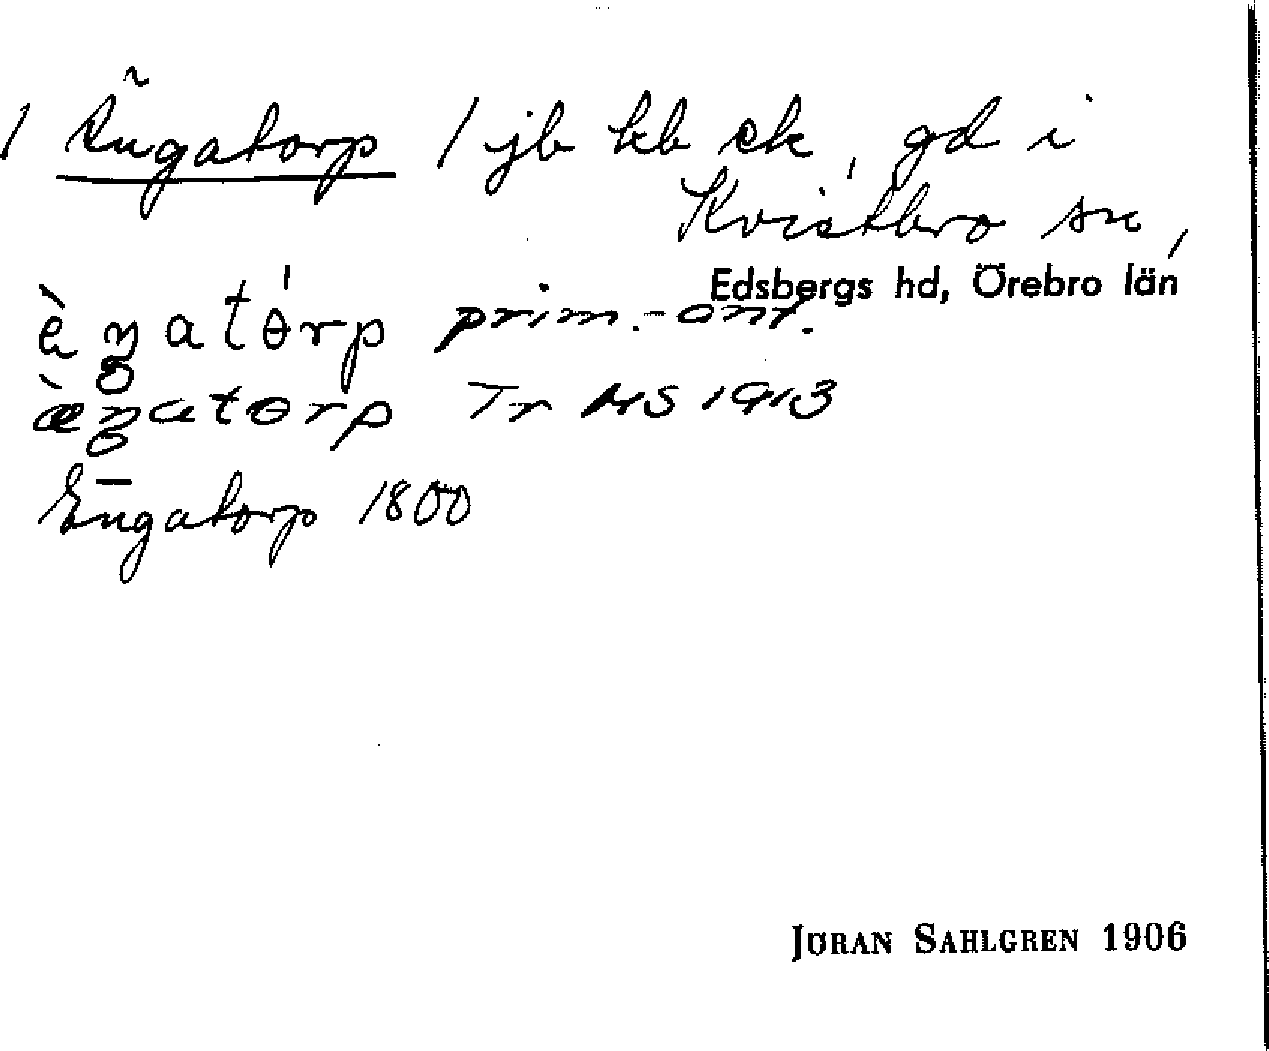 / Ängatorp / jb kb ek, gd i
Kvistbro sn,
Edsbergs hd, Örebro län
ὲŋatɵ́rp prim.-ant.
æ̀ŋatɵrp Tr HS 1913
Engatorp 1800
JÖRAN SAHLGREN 1906